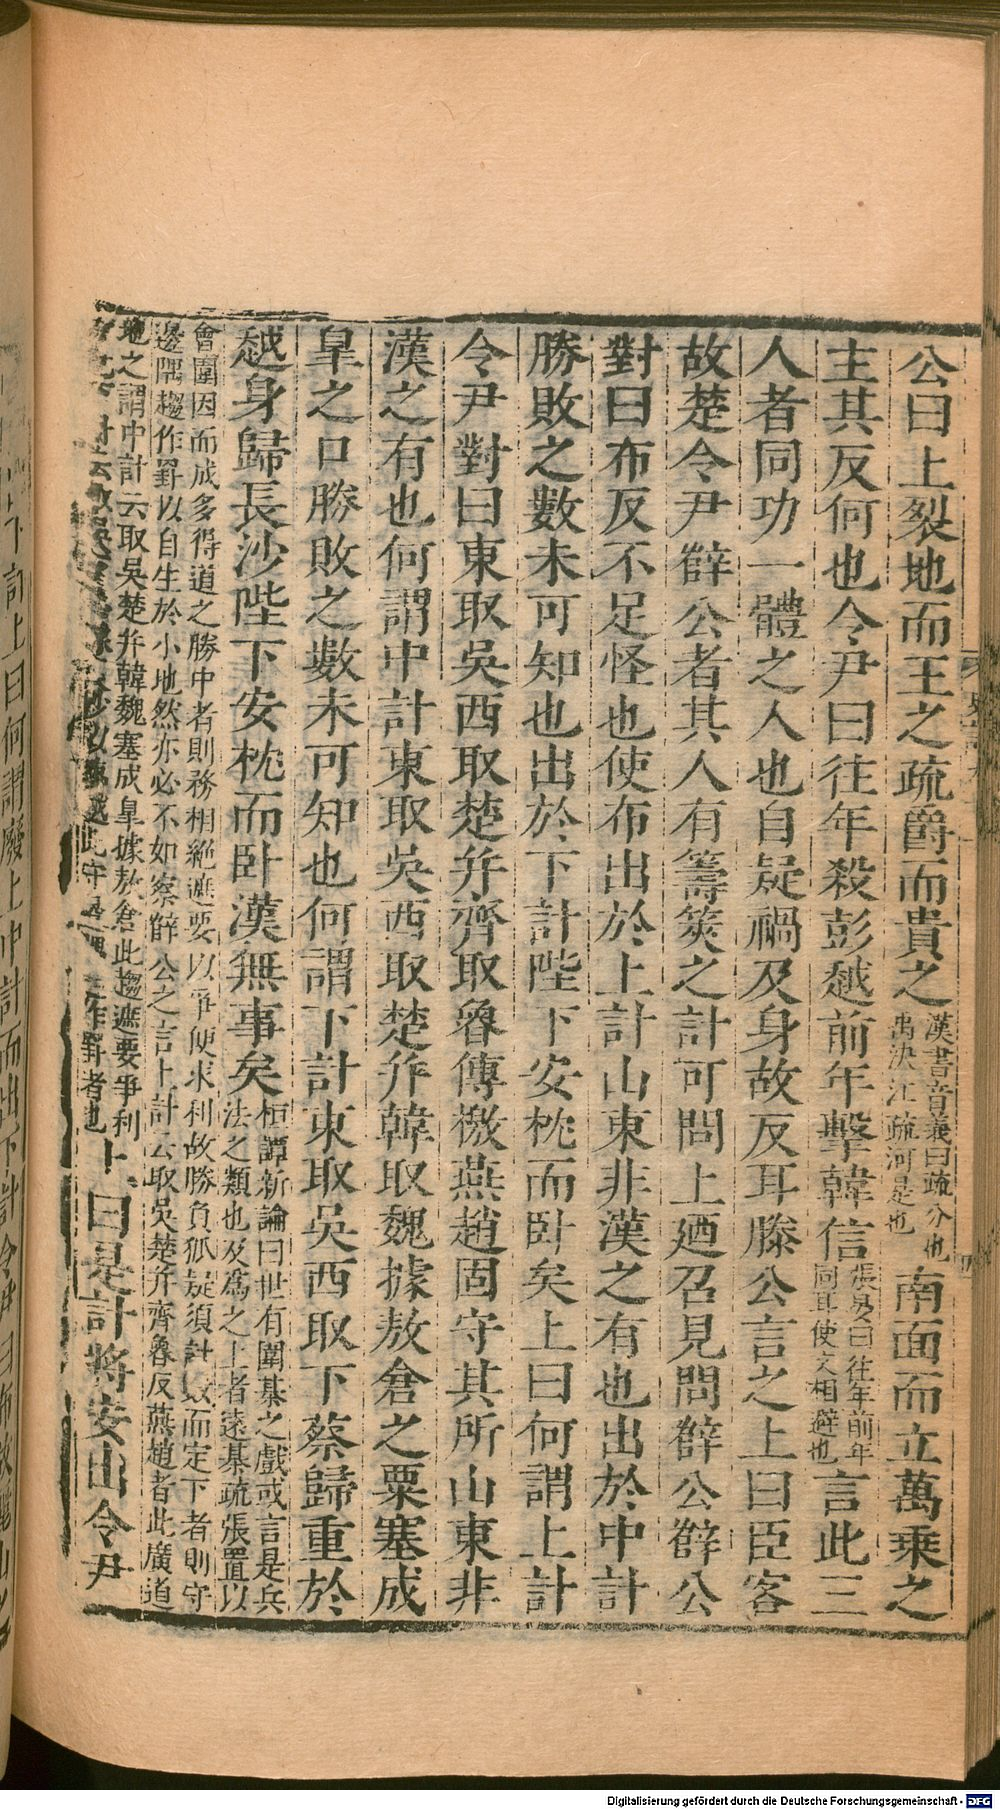 公曰上裂地而王之疏爵而貴之漢書音義曰疏分也禹決江疏河是也南面而立萬乘之
主其反何也令尹曰往年殺彭越前年擊韓信張晏曰往年前年同耳使文相避也言此三
人者同功一體之人也自疑禍及身故反耳滕公言之上曰臣客
故楚令尹薛公者其人有籌筴之計可問上廼召見問薛公薛公
對曰布反不足怪也使布出於上計山東非漢之有也出於中計
勝敗之數未可知也出於下計陛下安枕而臥矣上曰何謂上計
令尹對曰東取吳西取楚并齊取魯傳檄燕趙固守其所山東非
漢之有也何謂中計東取吳西取楚并韓取魏據敖倉之粟塞成
皐之口勝敗之數未可知也何謂下計東取吳西取下蔡歸重於
越身歸長沙陛下安枕而臥漢無事矣桓譚新論曰世有圍棊之戲或言是兵法之類也及爲之上者遠棊疏張置以
會圍因而成多得道之勝中者則務相絕遮要以爭便求利故勝負狐疑須計數而定下者則守
邊隅趨作罫以自生於小地然亦必不如察薛公之言上計云取吳楚并齊魯反燕趙者此廣道
地之謂中計云取吳楚并韓魏塞成皐據敖倉此趨遮要爭利
此守邊隅趨作罫者也上曰是計將安出令尹
下計上曰何謂廢上中計而出下計令尹曰布故麗山之
Digitalisierung gefördert durch die Deutsche Forschungsgemeinschaft - DFG